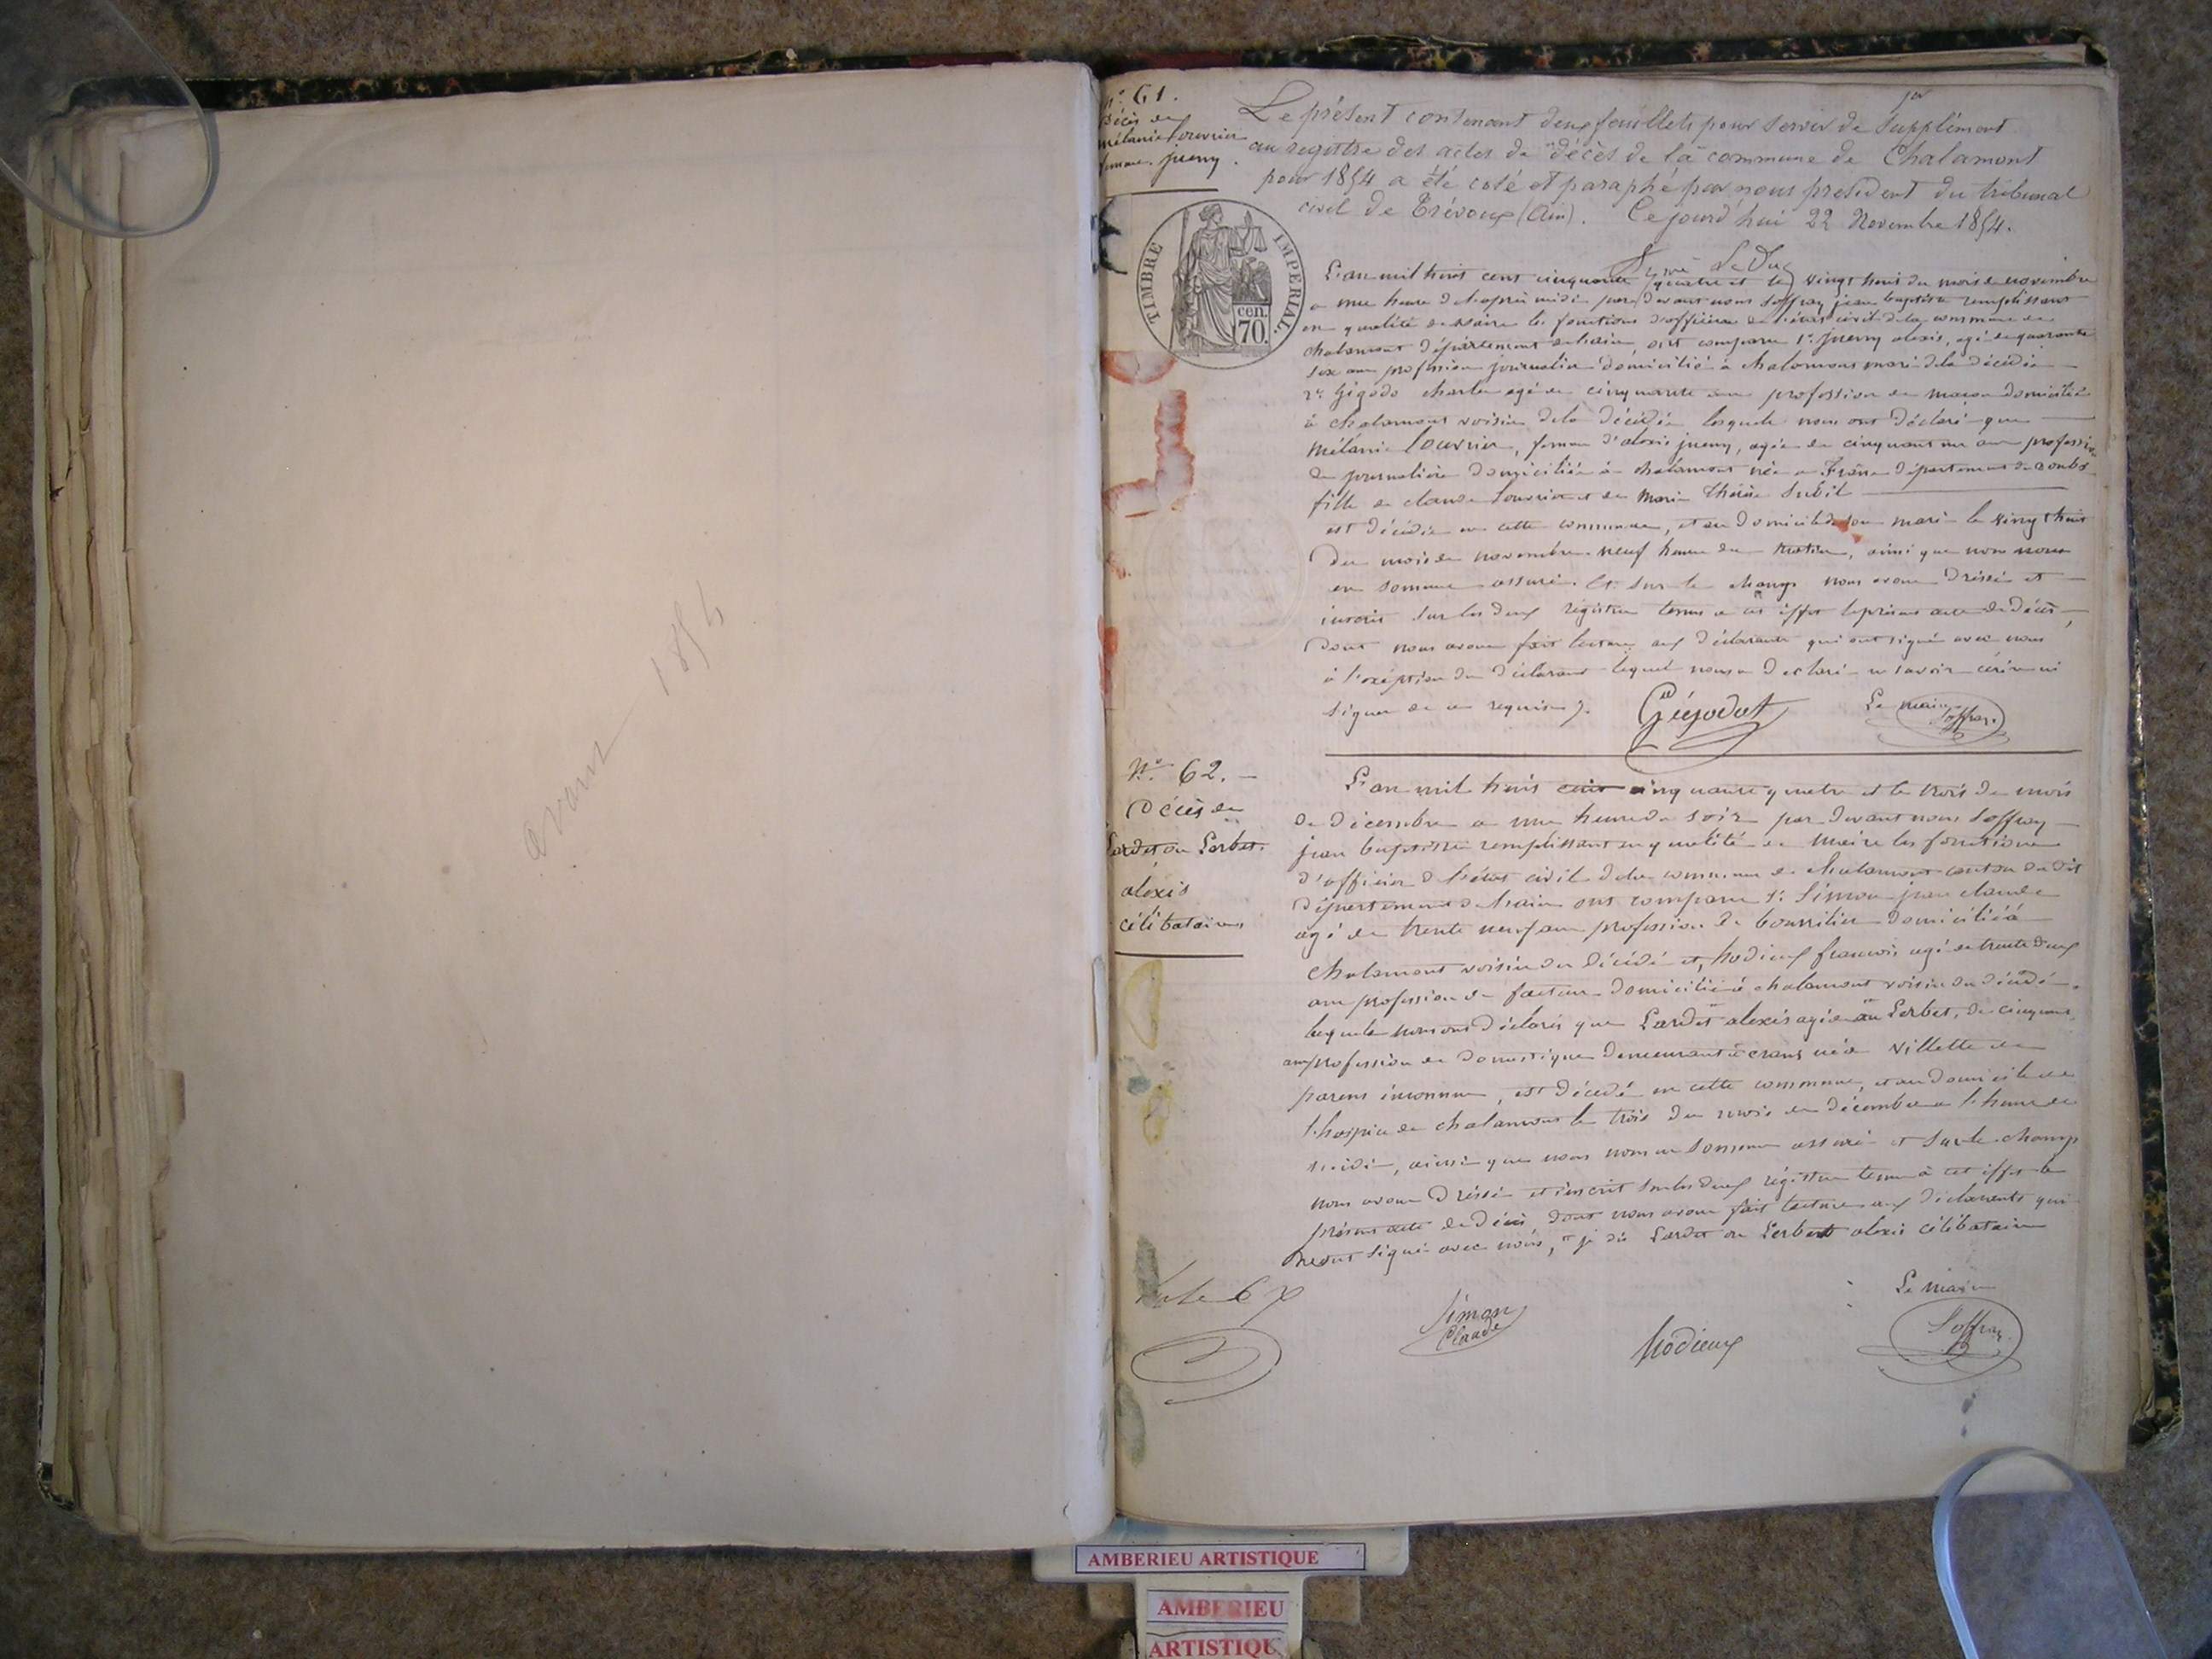 avant 1854
N° 61.
Décès de
mélanie Louvrier
femme jueny.
1er
Le présent contenant deux feuillets pour servir de Supplément
au registre des actes de décès de la commune de Chalamont
pour 1854 a été coté et paraphé par nous président du tribunal
civil de Trévoux (Ain). Ce jourd'hui 22 Novembre 1854.
Signé LeDuc
TIMBRE IMPERIAL.
cen.
70.
L'an mil huit cent cinquante quatre et le vingt huit du mois de novembre
a une heure de l'après midi par devant nous Soffray jean baptiste remplissant
en qualité de Maire les fonctions d'officier de l'état civil de la commune de
chalamont département de l'ain, ont comparu 1° jueny alexis, agé de quarante
six ans profession journalier domicilié à chalamont mari de la décédée
2° Gigodo charles agé de cinquante ans profession de maçon domicilié
à chalamont voisin de la décédée lesquels nous ont déclaré que
Mélanie Louvrier, femme d'alexis jueny, agée de cinquante un ans profession
de journalière domiciliée à chalamont née a département du doubs
fille de claude Louvrier et de Marie Thérèse
est décédée en cette commune, et au domicile de son mari le vingt huit
du mois de novembre neuf heures du matin, ainsi que nous nous
en sommes assuré. Et sur le champ nous avons dréssé et
inscrit sur les deux régistres tenus a cet éffet le présent acte de décès,
dont nous avons fait lecture aux déclarants qui ont signé avec nous
à l'exéption du déclarant lequel nous a déclaré ne savoir écrire ni
signer de ce requis.
Gigodot
Le maire
Soffray
N° 62.
Décès de
Lardet ou Lerbet.
alexis
célibataire
L'an mil huit cent cinquante quatre et le trois du mois
de décembre a une heure du soir par devant nous Soffray
jean baptiste remplissant en qualité de Maire les fonctions
d'officier de l'état civil de la commune de chalamont canton du dit
département de l'ain ont comparu 1° Simon jean claude
agé de trente neuf ans profession de bourrilier domicilié à
chalamont voisin du décédé et, hodieux francois agé de trente deux
ans profession de facteur domicilié à chalamont voisin du décédé.
lesquels nous ont déclarés que Lardet alexis agé de ou Lerbet, de cinquante
ans profession de domestique demeurant à crans né a Villette de
parens inconnus, est décédé en cette commune, et au domicile de
l'hospice de chalamont le trois du mois de décembre a l'heure de
midi, ainsi que nous nous en sommes assuré et sur le champ
nous avons dréssé et inscrit sur les deux régistres tenus à cet éffet le
présent acte de décès, dont nous avons fait lecture aux déclarants qui
ont signé avec nous, je dis Lardet ou Lerbet alexis célibataire
Simon
Claude
hodieux
Le maire
Soffray
AMBERIEU ARTISTIQUE
AMBERIEU
ARTISTIQU